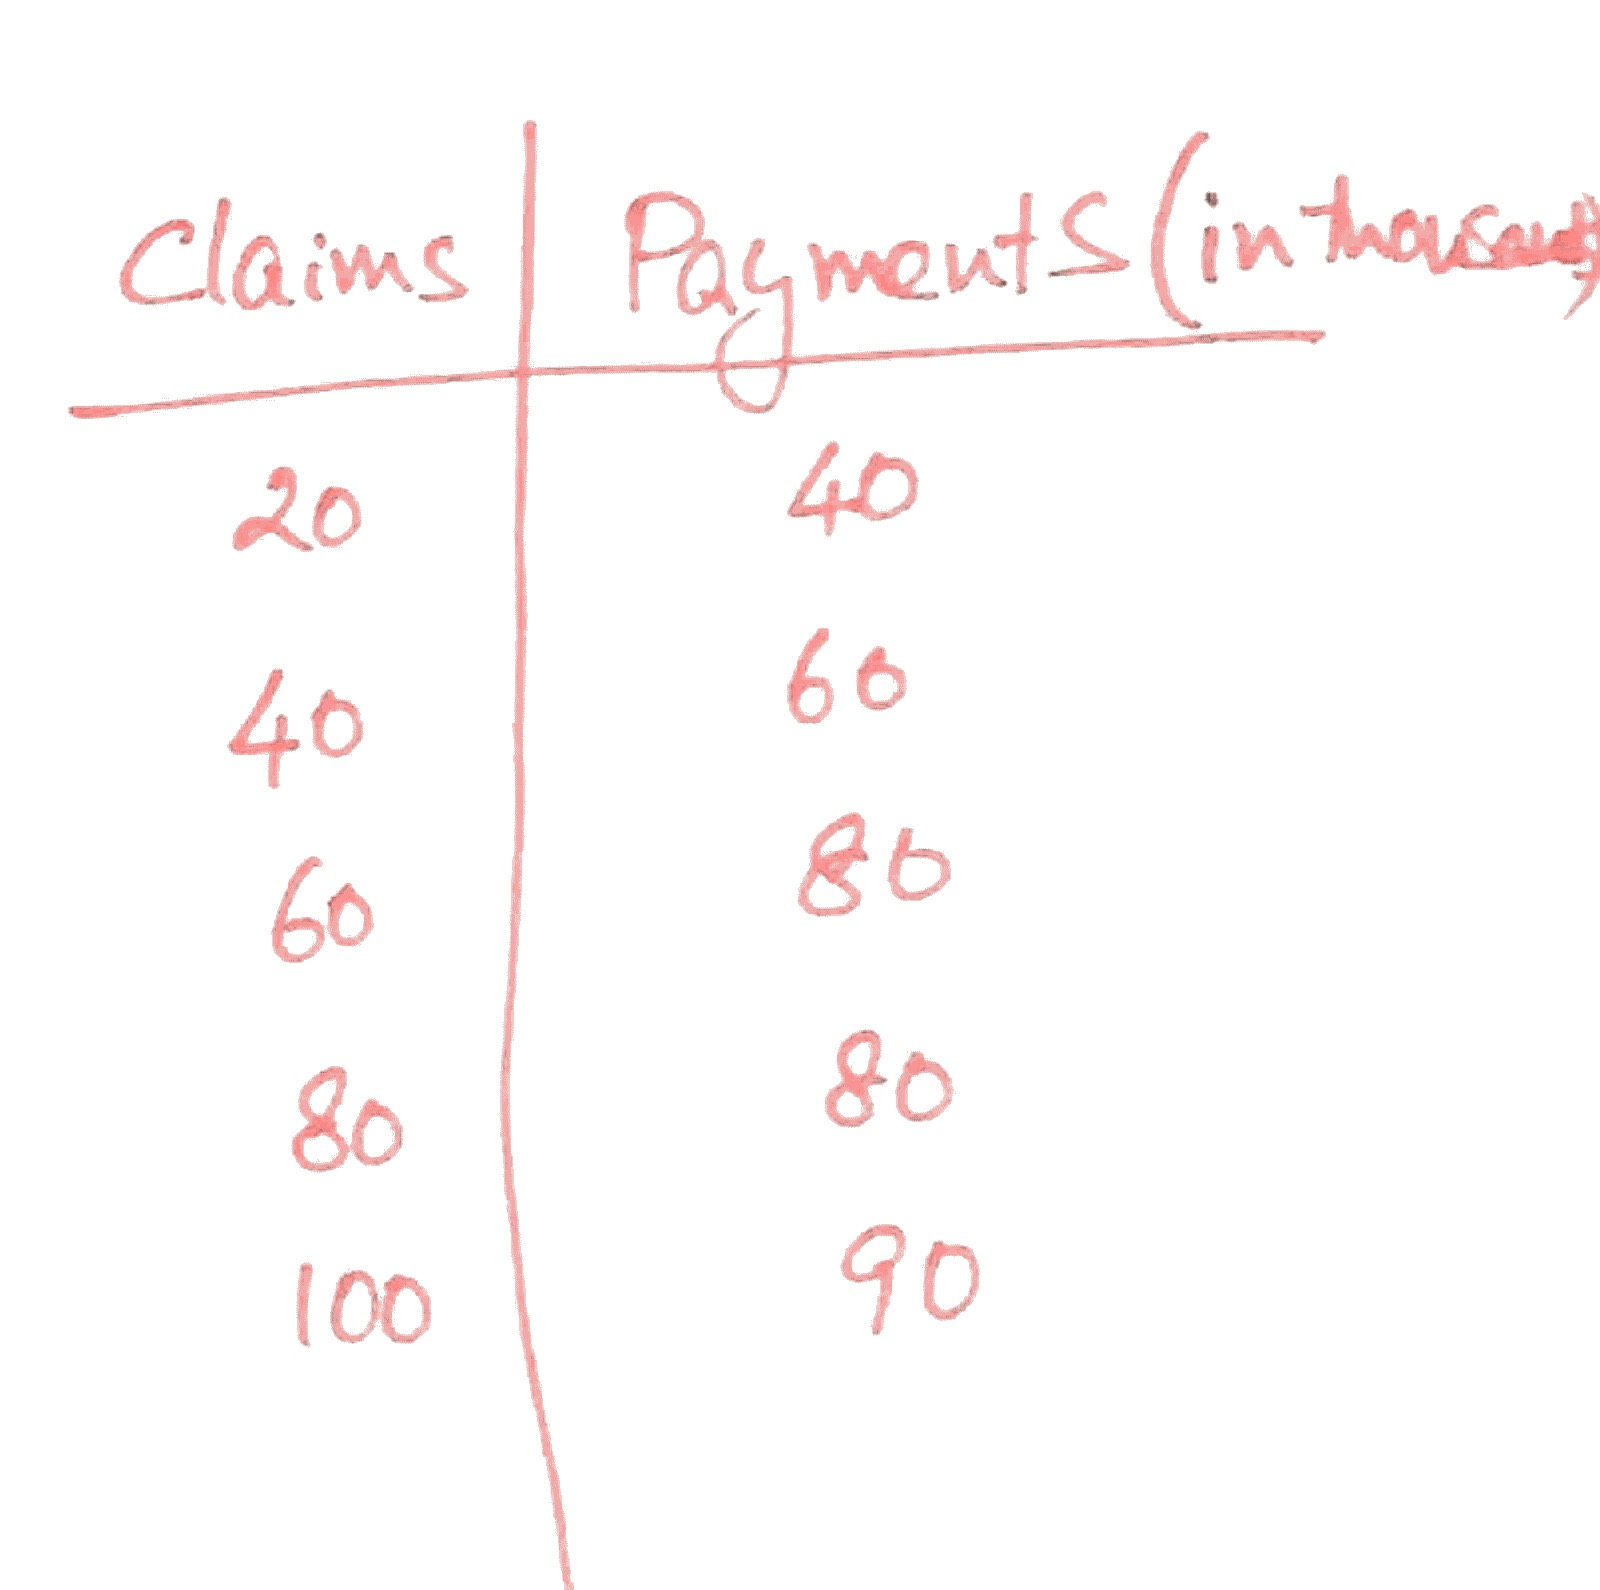 Claims Payments (in thousands)
20 40
40 60
60 80
80 80
100 90